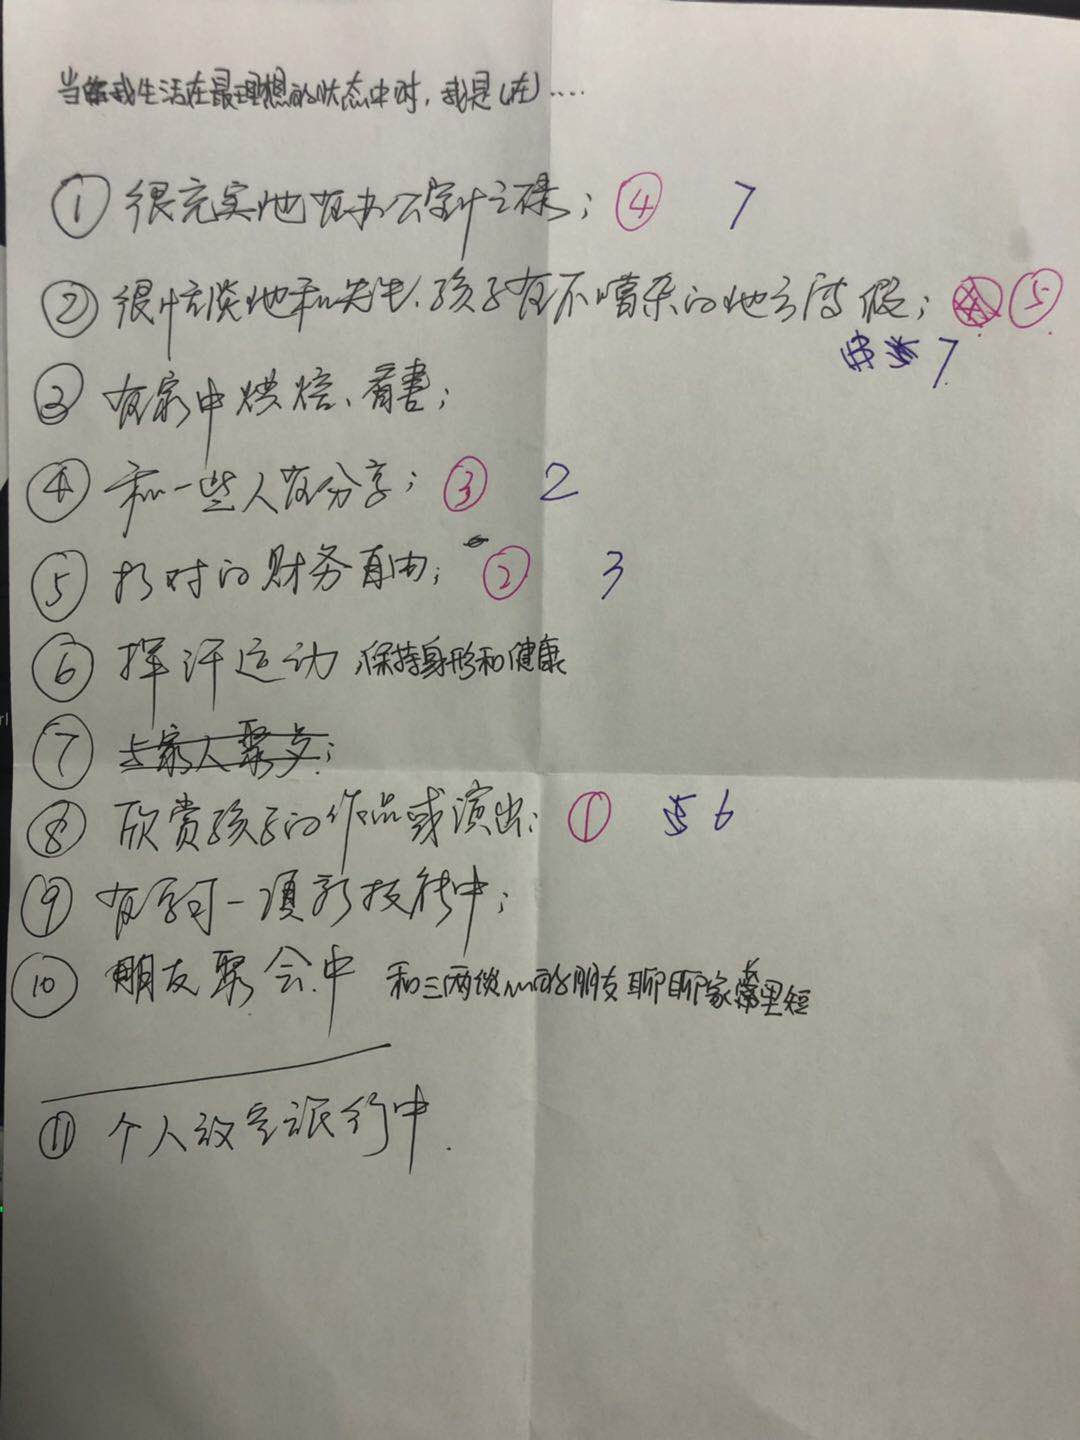 当我生活在最理想的状态中时，我是（在）....
① 很充实地在办公室忙碌； ④ 7
② 很恬淡地和先生、孩子在不嘈杂的地方度假； ⑤
7
③ 在家中烘焙、看書；
④ 和一些人在分享； ③ 2
⑤ 相对的财务自由； ② 3
⑥ 挥汗运动，保持身形和健康
⑦ 与家人聚会；
⑧ 欣赏孩子的作品或演出； ① 5 6
⑨ 在学习一项新技能中；
⑩ 朋友聚会中 和三两谈心的朋友聊聊家常里短
⑪ 个人放空旅行中.